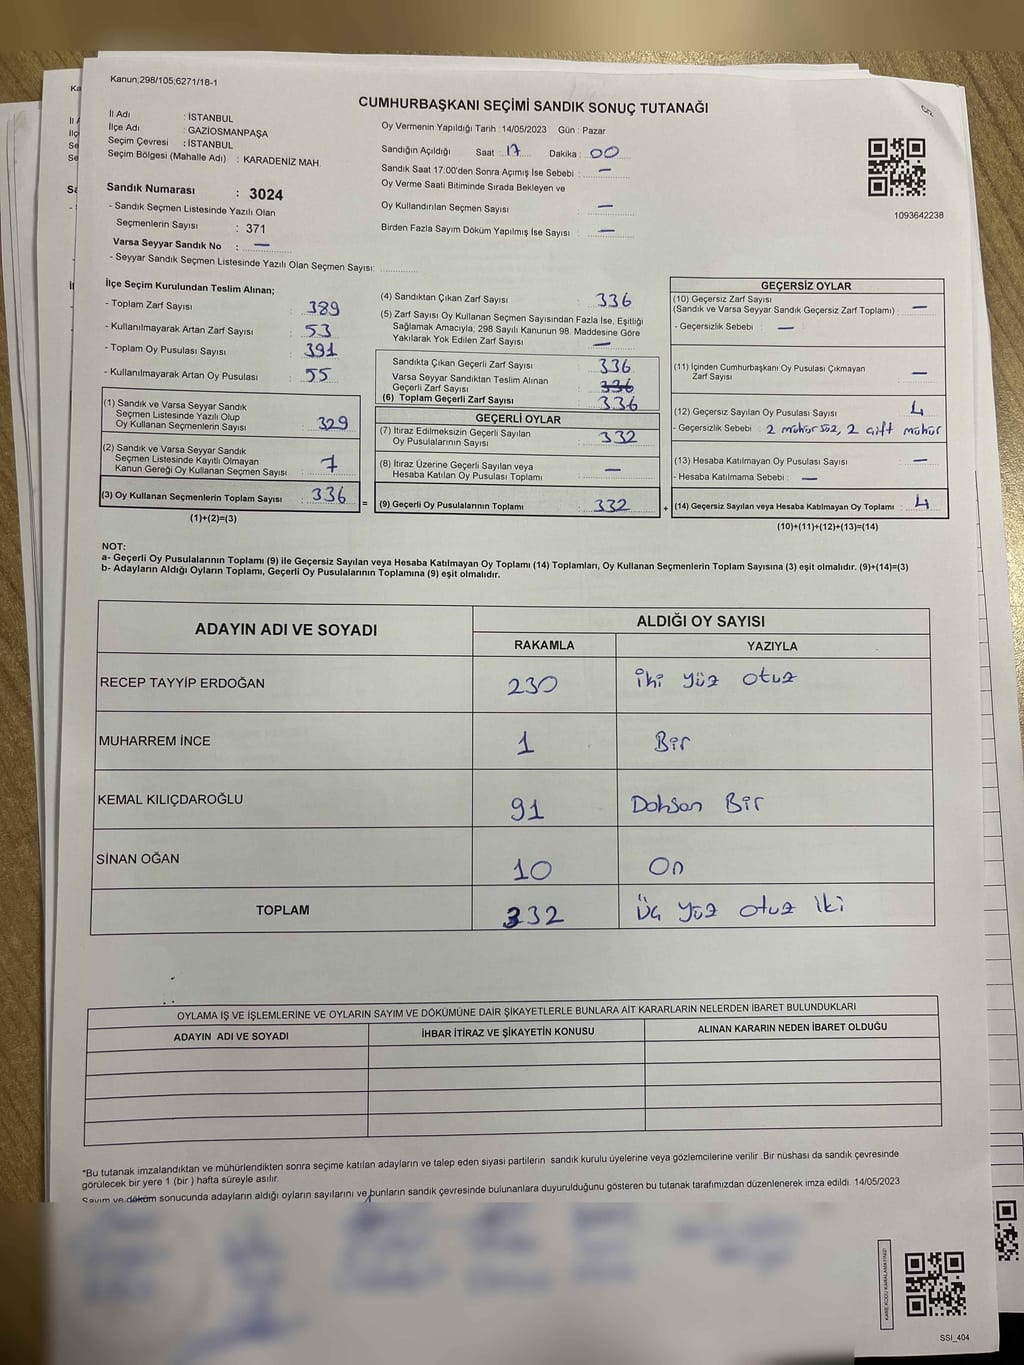 Kanun;298/105;6271/18-1
CUMHURBAŞKANI SEÇİMİ SANDIK SONUÇ TUTANAĞI
İl Adı : İSTANBUL
İlçe Adı : GAZİOSMANPAŞA
Seçim Çevresi : İSTANBUL
Seçim Bölgesi (Mahalle Adı) : KARADENİZ MAH.
Sandık Numarası : 3024
- Sandık Seçmen Listesinde Yazılı Olan
Seçmenlerin Sayısı : 371
Varsa Seyyar Sandık No : —
- Seyyar Sandık Seçmen Listesinde Yazılı Olan Seçmen Sayısı:
Oy Vermenin Yapıldığı Tarih :14/05/2023 Gün : Pazar
Sandığın Açıldığı Saat 17 Dakika : 00
Sandık Saat 17:00'den Sonra Açımış İse Sebebi : —
Oy Verme Saati Bitiminde Sırada Bekleyen ve
Oy Kullandırılan Seçmen Sayısı —
Birden Fazla Sayım Döküm Yapılmış İse Sayısı : —
1093642238
İlçe Seçim Kurulundan Teslim Alınan;
- Toplam Zarf Sayısı : 389
- Kullanılmayarak Artan Zarf Sayısı : 53
- Toplam Oy Pusulası Sayısı : 391
- Kullanılmayarak Artan Oy Pusulası : 55
(1) Sandık ve Varsa Seyyar Sandık
Seçmen Listesinde Yazılı Olup
Oy Kullanan Seçmenlerin Sayısı : 329
(2) Sandık ve Varsa Seyyar Sandık
Seçmen Listesinde Kayıtlı Olmayan
Kanun Gereği Oy Kullanan Seçmen Sayısı : 7
(3) Oy Kullanan Seçmenlerin Toplam Sayısı : 336
(1)+(2)=(3)
=
(4) Sandıktan Çıkan Zarf Sayısı : 336
(5) Zarf Sayısı Oy Kullanan Seçmen Sayısından Fazla İse, Eşitliği
Sağlamak Amacıyla, 298 Sayılı Kanunun 98. Maddesine Göre
Yakılarak Yok Edilen Zarf Sayısı : —
Sandıkta Çıkan Geçerli Zarf Sayısı : 336
Varsa Seyyar Sandıktan Teslim Alınan
Geçerli Zarf Sayısı : 336
(6) Toplam Geçerli Zarf Sayısı : 336
GEÇERLİ OYLAR
(7) İtiraz Edilmeksizin Geçerli Sayılan
Oy Pusulalarının Sayısı : 332
(8) İtiraz Üzerine Geçerli Sayılan veya
Hesaba Katılan Oy Pusulası Toplamı : —
(9) Geçerli Oy Pusulalarının Toplamı : 332
+
GEÇERSİZ OYLAR
(10) Geçersiz Zarf Sayısı
(Sandık ve Varsa Seyyar Sandık Geçersiz Zarf Toplamı) : —
- Geçersizlik Sebebi : —
(11) İçinden Cumhurbaşkanı Oy Pusulası Çıkmayan
Zarf Sayısı : —
(12) Geçersiz Sayılan Oy Pusulası Sayısı : 4
- Geçersizlik Sebebi : 2 mühürsüz, 2 çift mühür
(13) Hesaba Katılmayan Oy Pusulası Sayısı : —
- Hesaba Katılmama Sebebi : —
(14) Geçersiz Sayılan veya Hesaba Katılmayan Oy Toplamı : 4
(10)+(11)+(12)+(13)=(14)
NOT:
a- Geçerli Oy Pusulalarının Toplamı (9) ile Geçersiz Sayılan veya Hesaba Katılmayan Oy Toplamı (14) Toplamları, Oy Kullanan Seçmenlerin Toplam Sayısına (3) eşit olmalıdır. (9)+(14)=(3)
b- Adayların Aldığı Oyların Toplamı, Geçerli Oy Pusulalarının Toplamına (9) eşit olmalıdır.
ADAYIN ADI VE SOYADI ALDIĞI OY SAYISI
RAKAMLA YAZIYLA
RECEP TAYYİP ERDOĞAN 230 iki yüz otuz
MUHARREM İNCE 1 Bir
KEMAL KILIÇDAROĞLU 91 Doksan Bir
SİNAN OĞAN 10 On
TOPLAM 332 üç yüz otuz iki
OYLAMA İŞ VE İŞLEMLERİNE VE OYLARIN SAYIM VE DÖKÜMÜNE DAİR ŞİKAYETLERLE BUNLARA AİT KARARLARIN NELERDEN İBARET BULUNDUKLARI
ADAYIN ADI VE SOYADI İHBAR İTİRAZ VE ŞİKAYETİN KONUSU ALINAN KARARIN NEDEN İBARET OLDUĞU
*Bu tutanak imzalandıktan ve mühürlendikten sonra seçime katılan adayların ve talep eden siyasi partilerin sandık kurulu üyelerine veya gözlemcilerine verilir .Bir nüshası da sandık çevresinde
görülecek bir yere 1 (bir ) hafta süreyle asılır.
Sayım ve döküm sonucunda adayların aldığı oyların sayılarını ve bunların sandık çevresinde bulunanlara duyurulduğunu gösteren bu tutanak tarafımızdan düzenlenerek imza edildi. 14/05/2023
KARE KODU KARALAMAYINIZ!
SSI_404